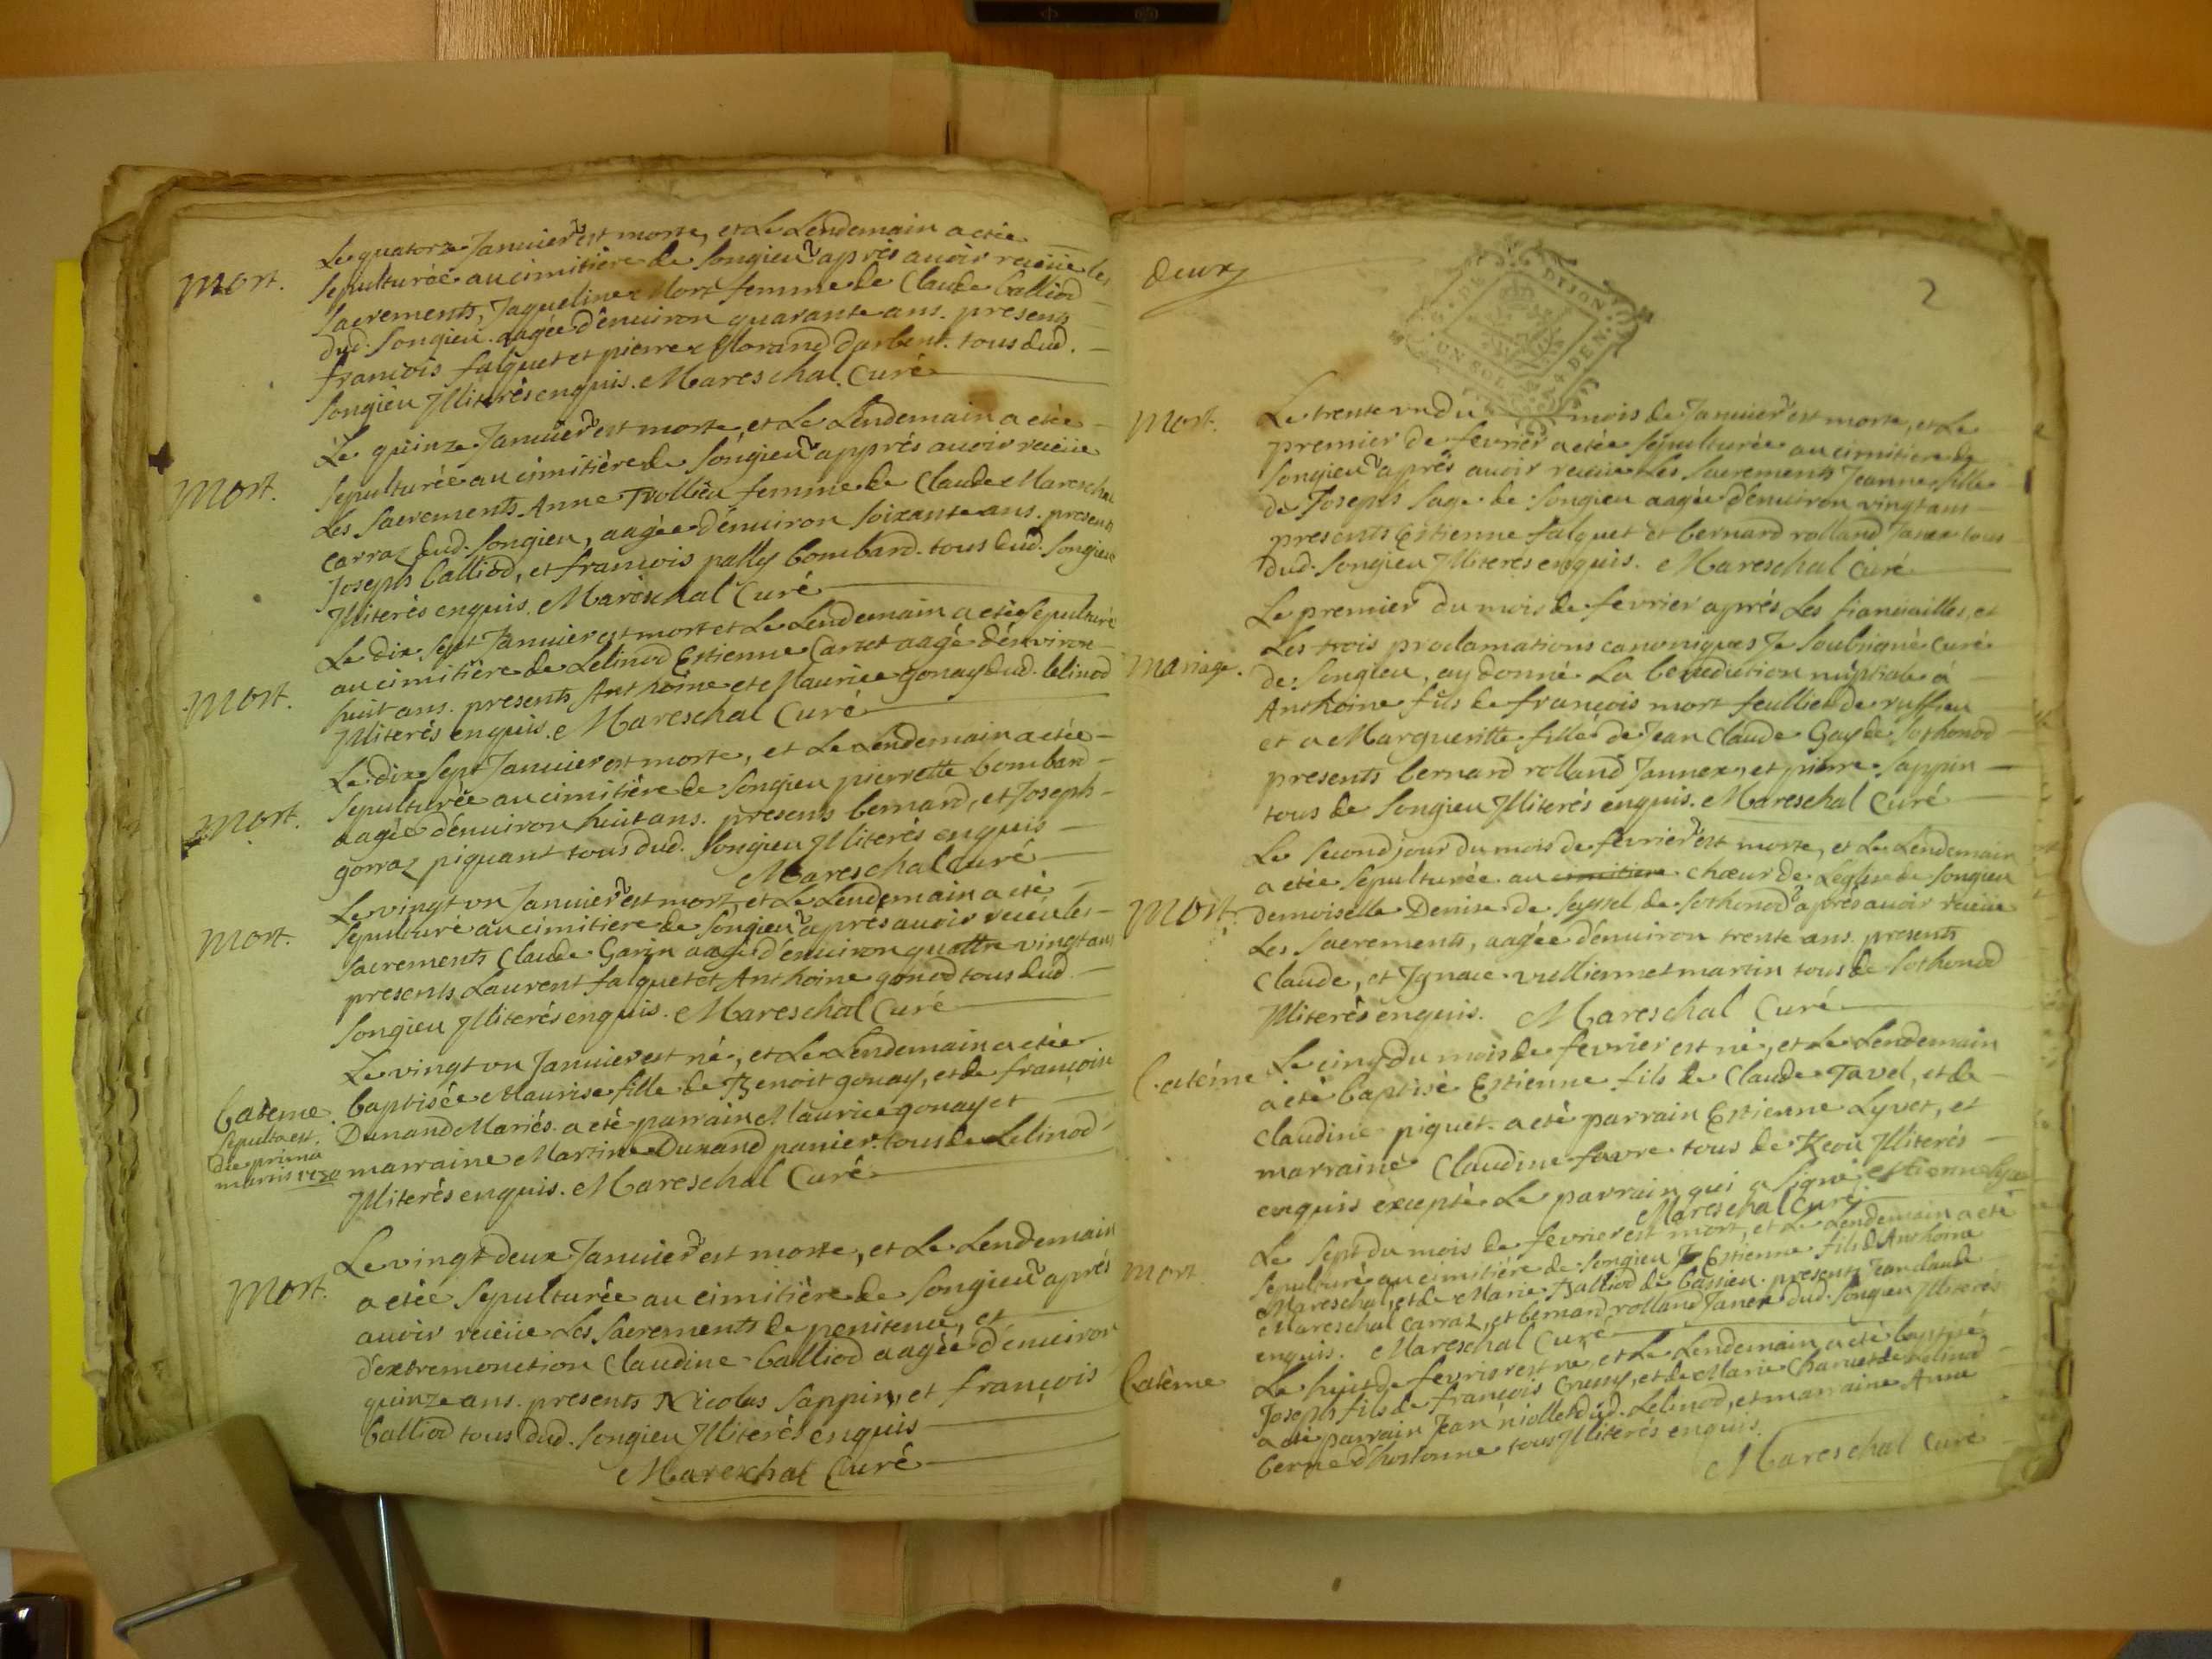 Mort.
Le quatorze Januier est morte, et Le Lendemain a etée
sepulturée au cimitière de Songieu après auoir reçüe les
sacrements, Jaqueline Mort femme de Claude Balliod
dud. Songieu. aagée d'enuiron quarante ans. presens
françois falquet et pierre Morand Darbent. tous dud.
Songieu Illiterés enquis. Mareschal Curé
Mort.
Le quinze Januier est morte et Le Lendemain a etée
sepulturée au cimitière de Songieu apprés auoir reçüe
Les sacrements Anne femme de Claude Mareschal
Carraz dud. Songieu, aagée d'enuiron soixante ans. presents
Joseph Balliod, et françois pally bombard. tous dud. Songieu
Illiterés enquis. Mareschal Curé
Mort.
Le dix sept Januier est mort et Le Lendemain a eté sepulturé
au cimitière de Lelinod Estienne Cartet aagé d'environ
huit ans. presents Anthoine et Maurice gonay dud. Lelinod
Illiterés enquis. Mareschal Curé
Mort.
Le dix sept Januier est morte, et Le Lendemain a etée
sepulturée au cimitière de Songieu pierrette bombard
aagée d'enuiron huit ans. presents bernard, et Joseph
gorraz piquant tous dud. Songieu Illiterés enquis
Mareschal Curé
Mort.
Le vingt vn Januier est mort, et Le Lendemain a eté
sepulturé au cimitiere de Songieu après auoir reçeu les
sacrements Claude Garin aagé d'enuiron quattre vingt ans
presents Laurent falquet et Anthoine gonod tous dud.
Songieu Illiterés enquis. Mareschal Curé
bateme.
sepulta est.
die prima
martis 1730
Le vingt vn Januier est né, et Le Lendemain a etée
baptisée Maurise fille de Benoit gonay, et de françoise
Dunand Mariés. a eté parrain Maurice gonay et
marraine Martine Dunand panier. tous de Lelinod
Illiterés enquis. Mareschal Curé
Mort.
Le vingt deux Januier est morte, et Le Lendemain
a etée sepulturée au cimitière de Songieu après
auoir reçüe Les sacrements de penitence, et
d'extremonction Claudine Balliod aagée d'enuiron
quinze ans. presents Nicolas sappin, et françois
Balliod tous dud. Songieu Illiterés enquis
Mareschal Curé
deux
2
G. DE DIJON
UN SOL. 4 DEN.
Mort.
Le trente vn du mois de Januier est morte, et Le
premier de fevrier a etée sepulturée au cimitiere de
Songieu après auoir reçüe Les sacrements Jeanne fille
de Joseph sage de Songieu aagée d'enuiron vingt ans
presents Estienne falquet et bernard rolland Janex tous
dud. Songieu Illiteres enquis. Mareschal Curé
Mariage.
Le premier du mois de fevrier après Les fiançailles, et
Les trois proclamations canoniques Je soubsigné Curé
de Songieu, ay donné La benediction nuptiale à
Anthoine fils de françois mort feullien de ruffieu
et a Margueritte fille de Jean Claude Gay de sothonod
presents bernard rolland Jannex, et pierre sappin
tous de Songieu Illiterés enquis. Mareschal Curé
Mort.
Le second jour du mois de fevrier est morte, et Le Lendemain
a etée sepulturée au cimitiere chœur de L'eglise de Songieu
demoiselle Denise de seyssel de sothonod après auoir reçüe
Les sacrements, aagée d'enuiron trente ans. presents
Claude, et Ignace vulliermet martin tous de sothonod
Illiterés enquis. Mareschal Curé
bateme
Le cinq du mois de fevrier est né, et Le Lendemain
a eté baptisé Estienne fils de Claude Tavel, et de
Claudine piquet. a eté parrain Estienne Lyvet, et
marraine Claudine favre tous de Illiterés
enquis excepté Le parrain qui a signé estienne
Mareschal Curé
mort
Le sept du mois de fevrier est mort, et Le Lendemain a eté
sepulturé au cimitière de Songieu Estienne fils d'Anthoine
Mareschal, et de Marie Balliod de bassieu. presents Jean Claude
Mareschal Carraz, et bernard rolland Janex dud. Songieu Illiterés
enquis. Mareschal Curé
batème
Le huit de fevrier est né, et Le Lendemain a eté baptisé
Joseph fils de françois Crussy, et de Marie Charvet de Lelinod
a eté parrain Jean niollet dud. Lelinod, et marraine Anne
berne d'hostonne tous Illiterés enquis.
Mareschal Curé